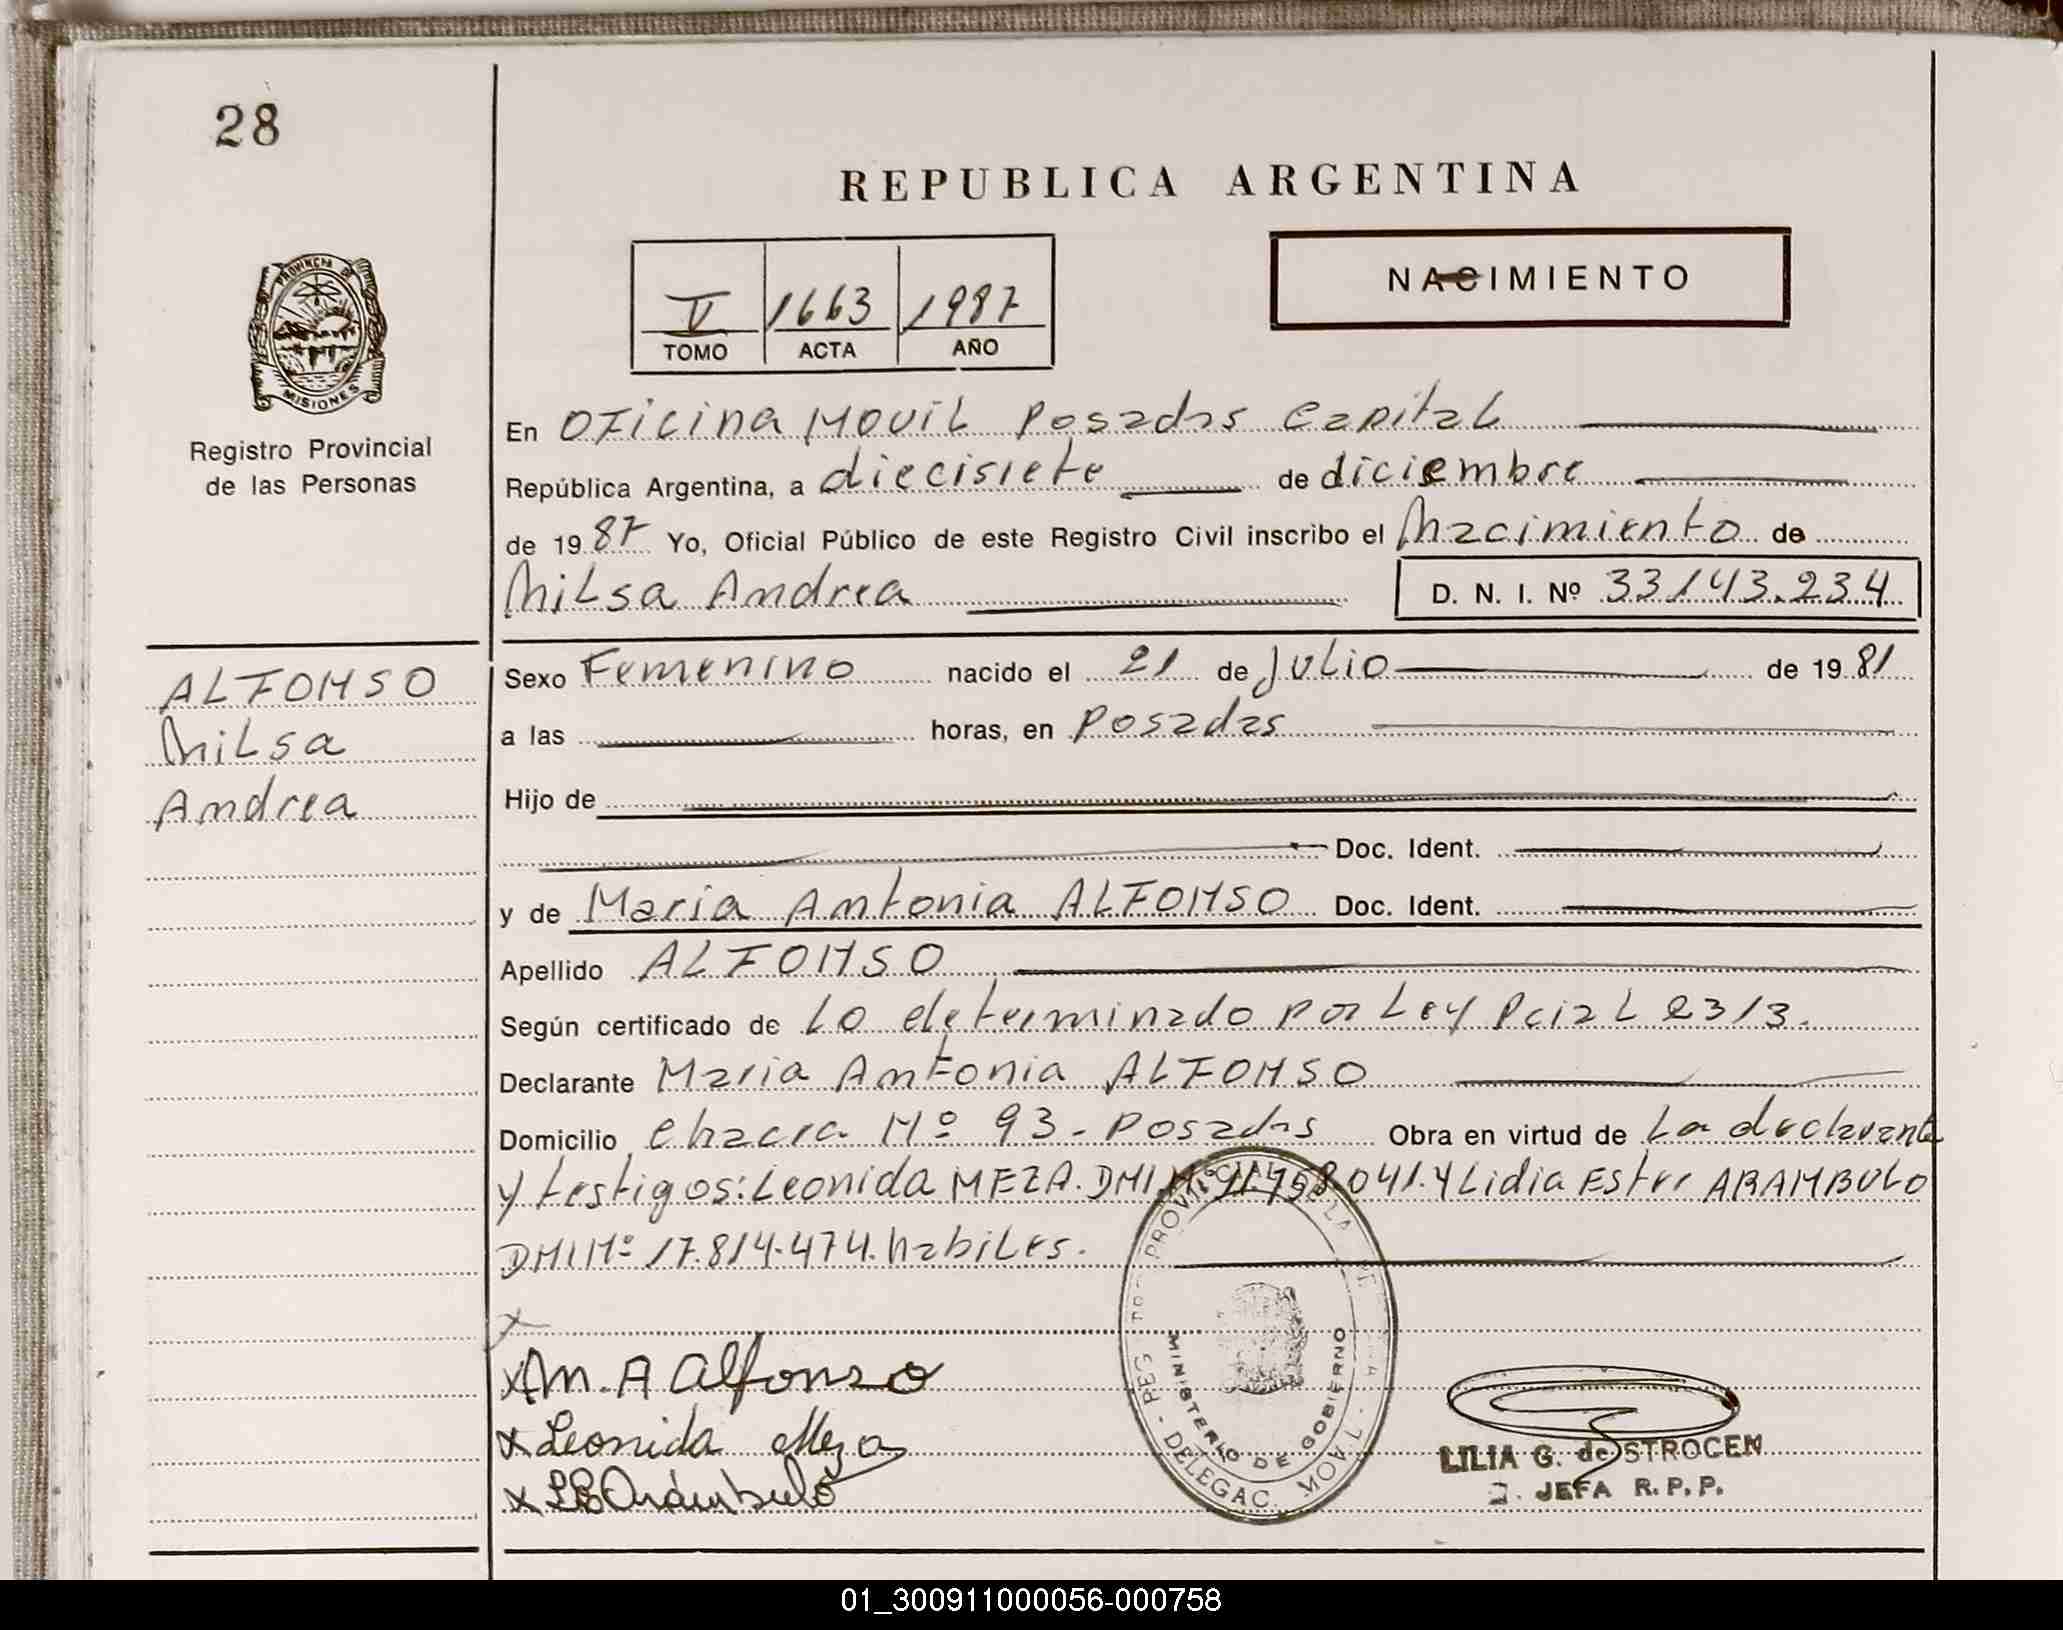 28
REPUBLICA ARGENTINA
NACIMIENTO
V 1663 1987
TOMO ACTA AÑO
PROVINCIA DE
MISIONES
Registro Provincial
de las Personas
En Oficina Movil Posadas Capital
República Argentina, a diecisiete de diciembre
de 1987 Yo, Oficial Público de este Registro Civil inscribo el Nacimiento de
Nilsa Andrea D. N. I. Nº 33143.234
ALFONSO
Nilsa
Andrea
Sexo Femenino nacido el 21 de Julio de 1981
a las horas, en Posadas
Hijo de
Doc. Ident.
y de Maria Antonia ALFONSO Doc. Ident.
Apellido ALFONSO
Según certificado de Lo determinado por Ley Pcial 2313.
Declarante Maria Antonia ALFONSO
Domicilio Chacra Nº 93 - Posadas Obra en virtud de La declarante
y testigos: Leonida MEZA. DNI.Nº 11.758.041. y Lidia Ester ARAMBULO
DNI Nº 17.814.474. habiles.
x
x M. A Alfonso
x Leonida Meza
x LE Arámbulo
PROVINCIAL DE LA
MINISTERIO DE GOBIERNO
DELEGAC. MOVIL
LILIA G. de STROCEN
JEFA R.P.P.
01_300911000056-000758